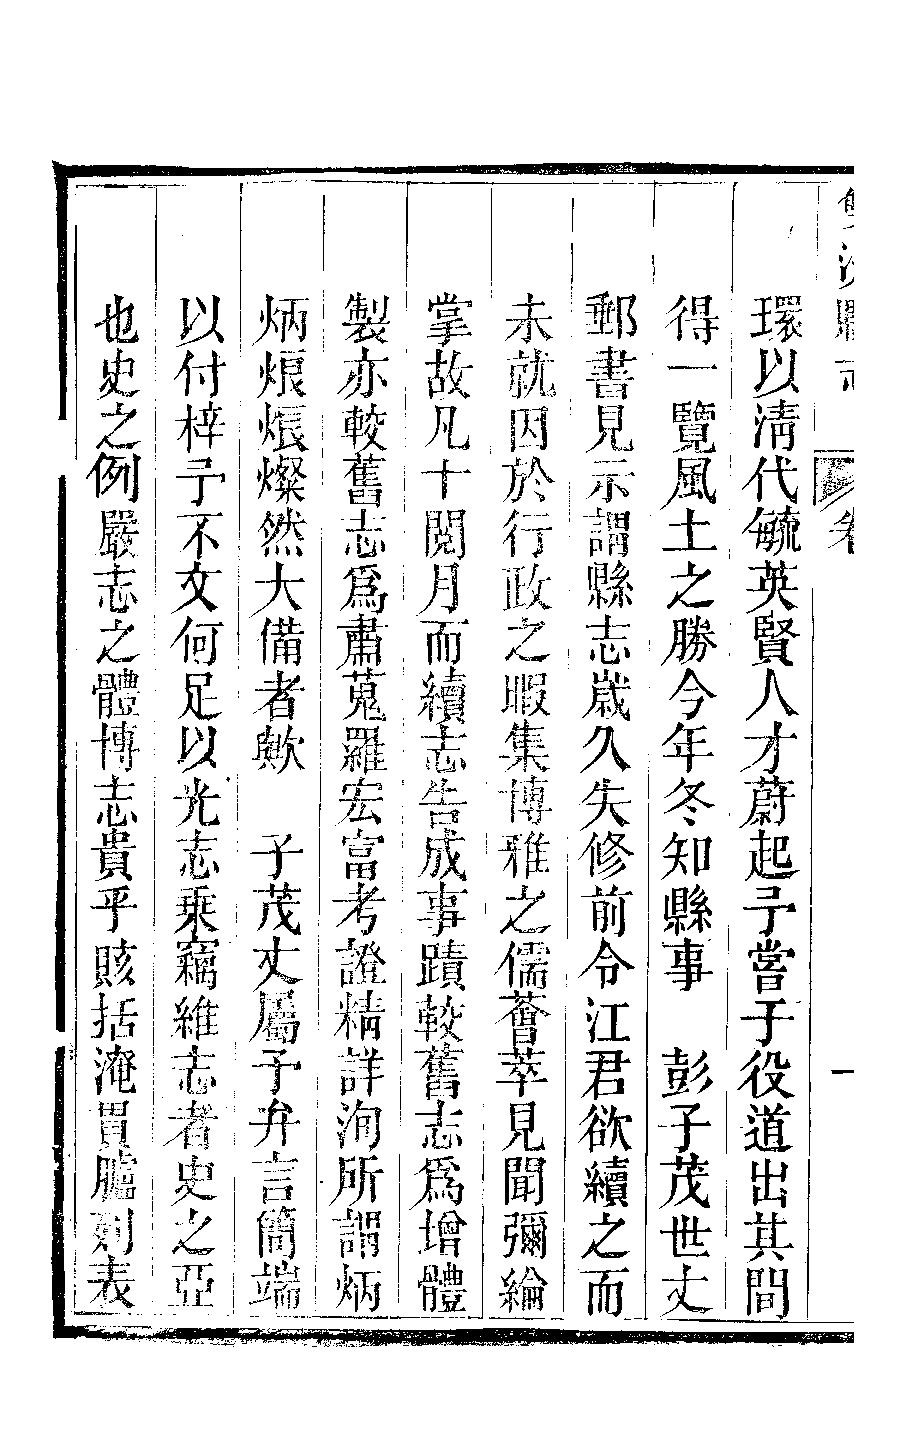 縣志
環以淸代毓英賢人才蔚起予嘗于役道出其間
得一覽風土之勝今年冬知縣事　彭子茂世丈
郵書見示謂縣志歲久失修前令江君欲續之而
未就因於行政之暇集博雅之儒薈萃見聞彌綸
掌故凡十閱月而續志告成事蹟較舊志爲增體
製亦較舊志爲肅蒐羅宏富考證精詳洵所謂炳
炳烺烺燦然大備者歟　子茂丈屬予弁言簡端
以付梓予不文何足以光志乗竊維志者史之亞
也史之例嚴志之體博志貴乎賅括淹貫臚列表